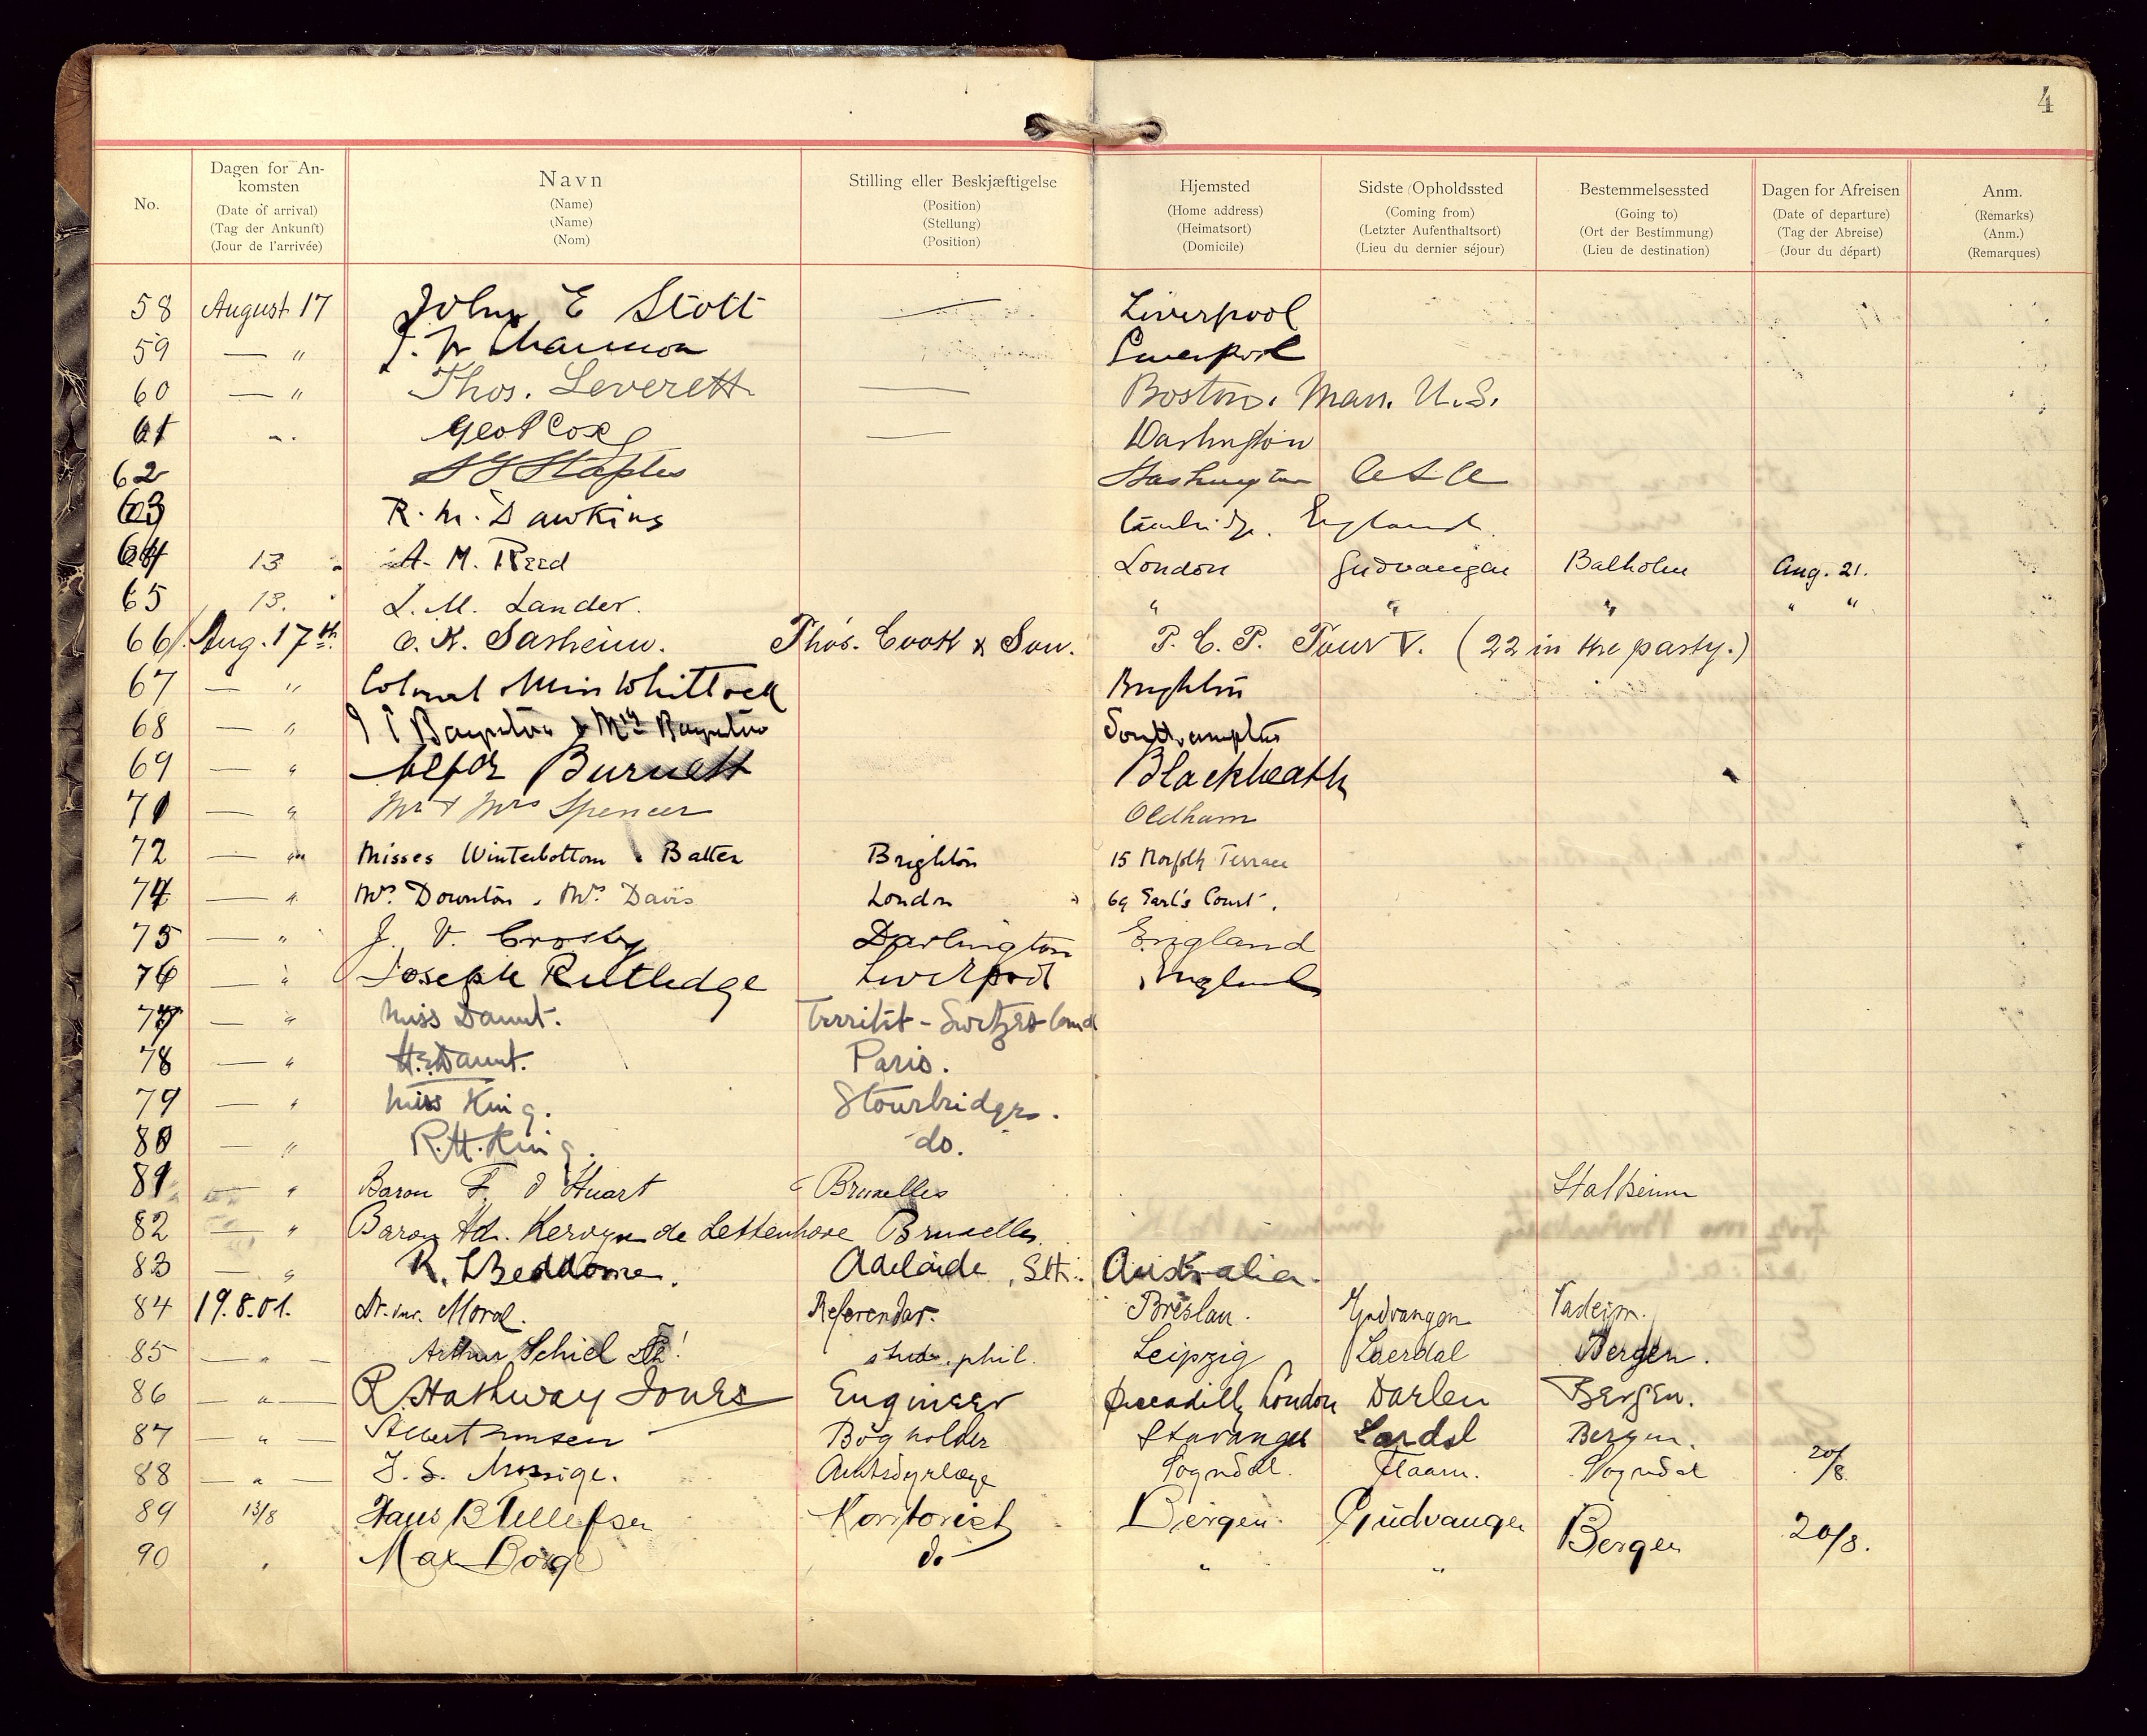 4
No.
Dagen for Ankomsten
(Date of arrival)
(Tag der Ankunft)
(Jour de l'arrivée)
Navn
(Name)
(Name)
(Nom)
Stilling eller Beskjæftigelse
(Position)
(Stellung)
(Position)
Hjemsted
(Home address)
(Heimatsort)
(Domicile)
Sidste Opholdssted
(Coming from)
(Letzter Aufenthaltsort)
(Lieu du dernier séjour)
Bestemmelsessted
(Going to)
(Ort der Bestimmung)
(Lieu de destination)
Dagen for Afreisen
(Date of departure)
(Tag der Abreise)
(Jour du départ)
Anm.
(Remarks)
(Anm.)
(Remarques)
58 August 17 John E Stott — Liverpool
59 — " Liverpool
60 — " Thos. Leverett — Boston. Mass. U.S.
61 " Geo P Cox — Washington
62 Staples Washington USA
63 R. M. Dawkins Cambridge. England.
64 13 A. M. Reed London Gudvangen Balholm Aug. 21.
65 13. L. M. Lander. " " " " "
66 Aug. 17th. O. K. Sasheim. Thos. Cook & Son. P. C. P. Tour V. (22 in the party.)
67 — " Colonel Miss Whittock Brighton
68 — " Baynton & Mrs Baynton Southampton
69 — " Alfd Burnett Blackheath
71 — " Mr & Mrs Spencer Oldham
72 — " Misses Winterbottom & Batten Brighton 15 Norfolk Terrace
74 — " Mrs Downton, Mrs Davis London 69 Earl's Court.
75 — " J. V. Crosby Darlington England
76 — " Joseph Rutledge Liverpool England
77 — " Miss Daunt. Territet - Switzerland
78 — " H. Daunt. Paris.
79 — " Miss King. Stourbridge.
80 — " R. H. King. do.
81 — " Baron F. d'Huart Bruxelles Stalheim
82 — " Baron Ad. Kervyn de Lettenhove Bruxelles.
83 — " R. Beddome. Adelaide, Sth. Australia.
84 19.8.01. Dr. iur. Moral. Referendar. Breslau. Gudvangen
85 — " — Arthur Schiel stud. phil. Leipzig Laerdal Bergen.
86 — " — R Hathway Jones Engineer Piccadilly London Bergen.
87 — " — Bogholder Stavanger Lardal Bergen.
88 — " — Amtsdyrlæge Sogndal. Flaam. Sogndal 20/8
89 13/8 Hans B Tellefsen Kontorist Bergen. Gudvangen Bergen 20/8.
90 " Max Borge do " "